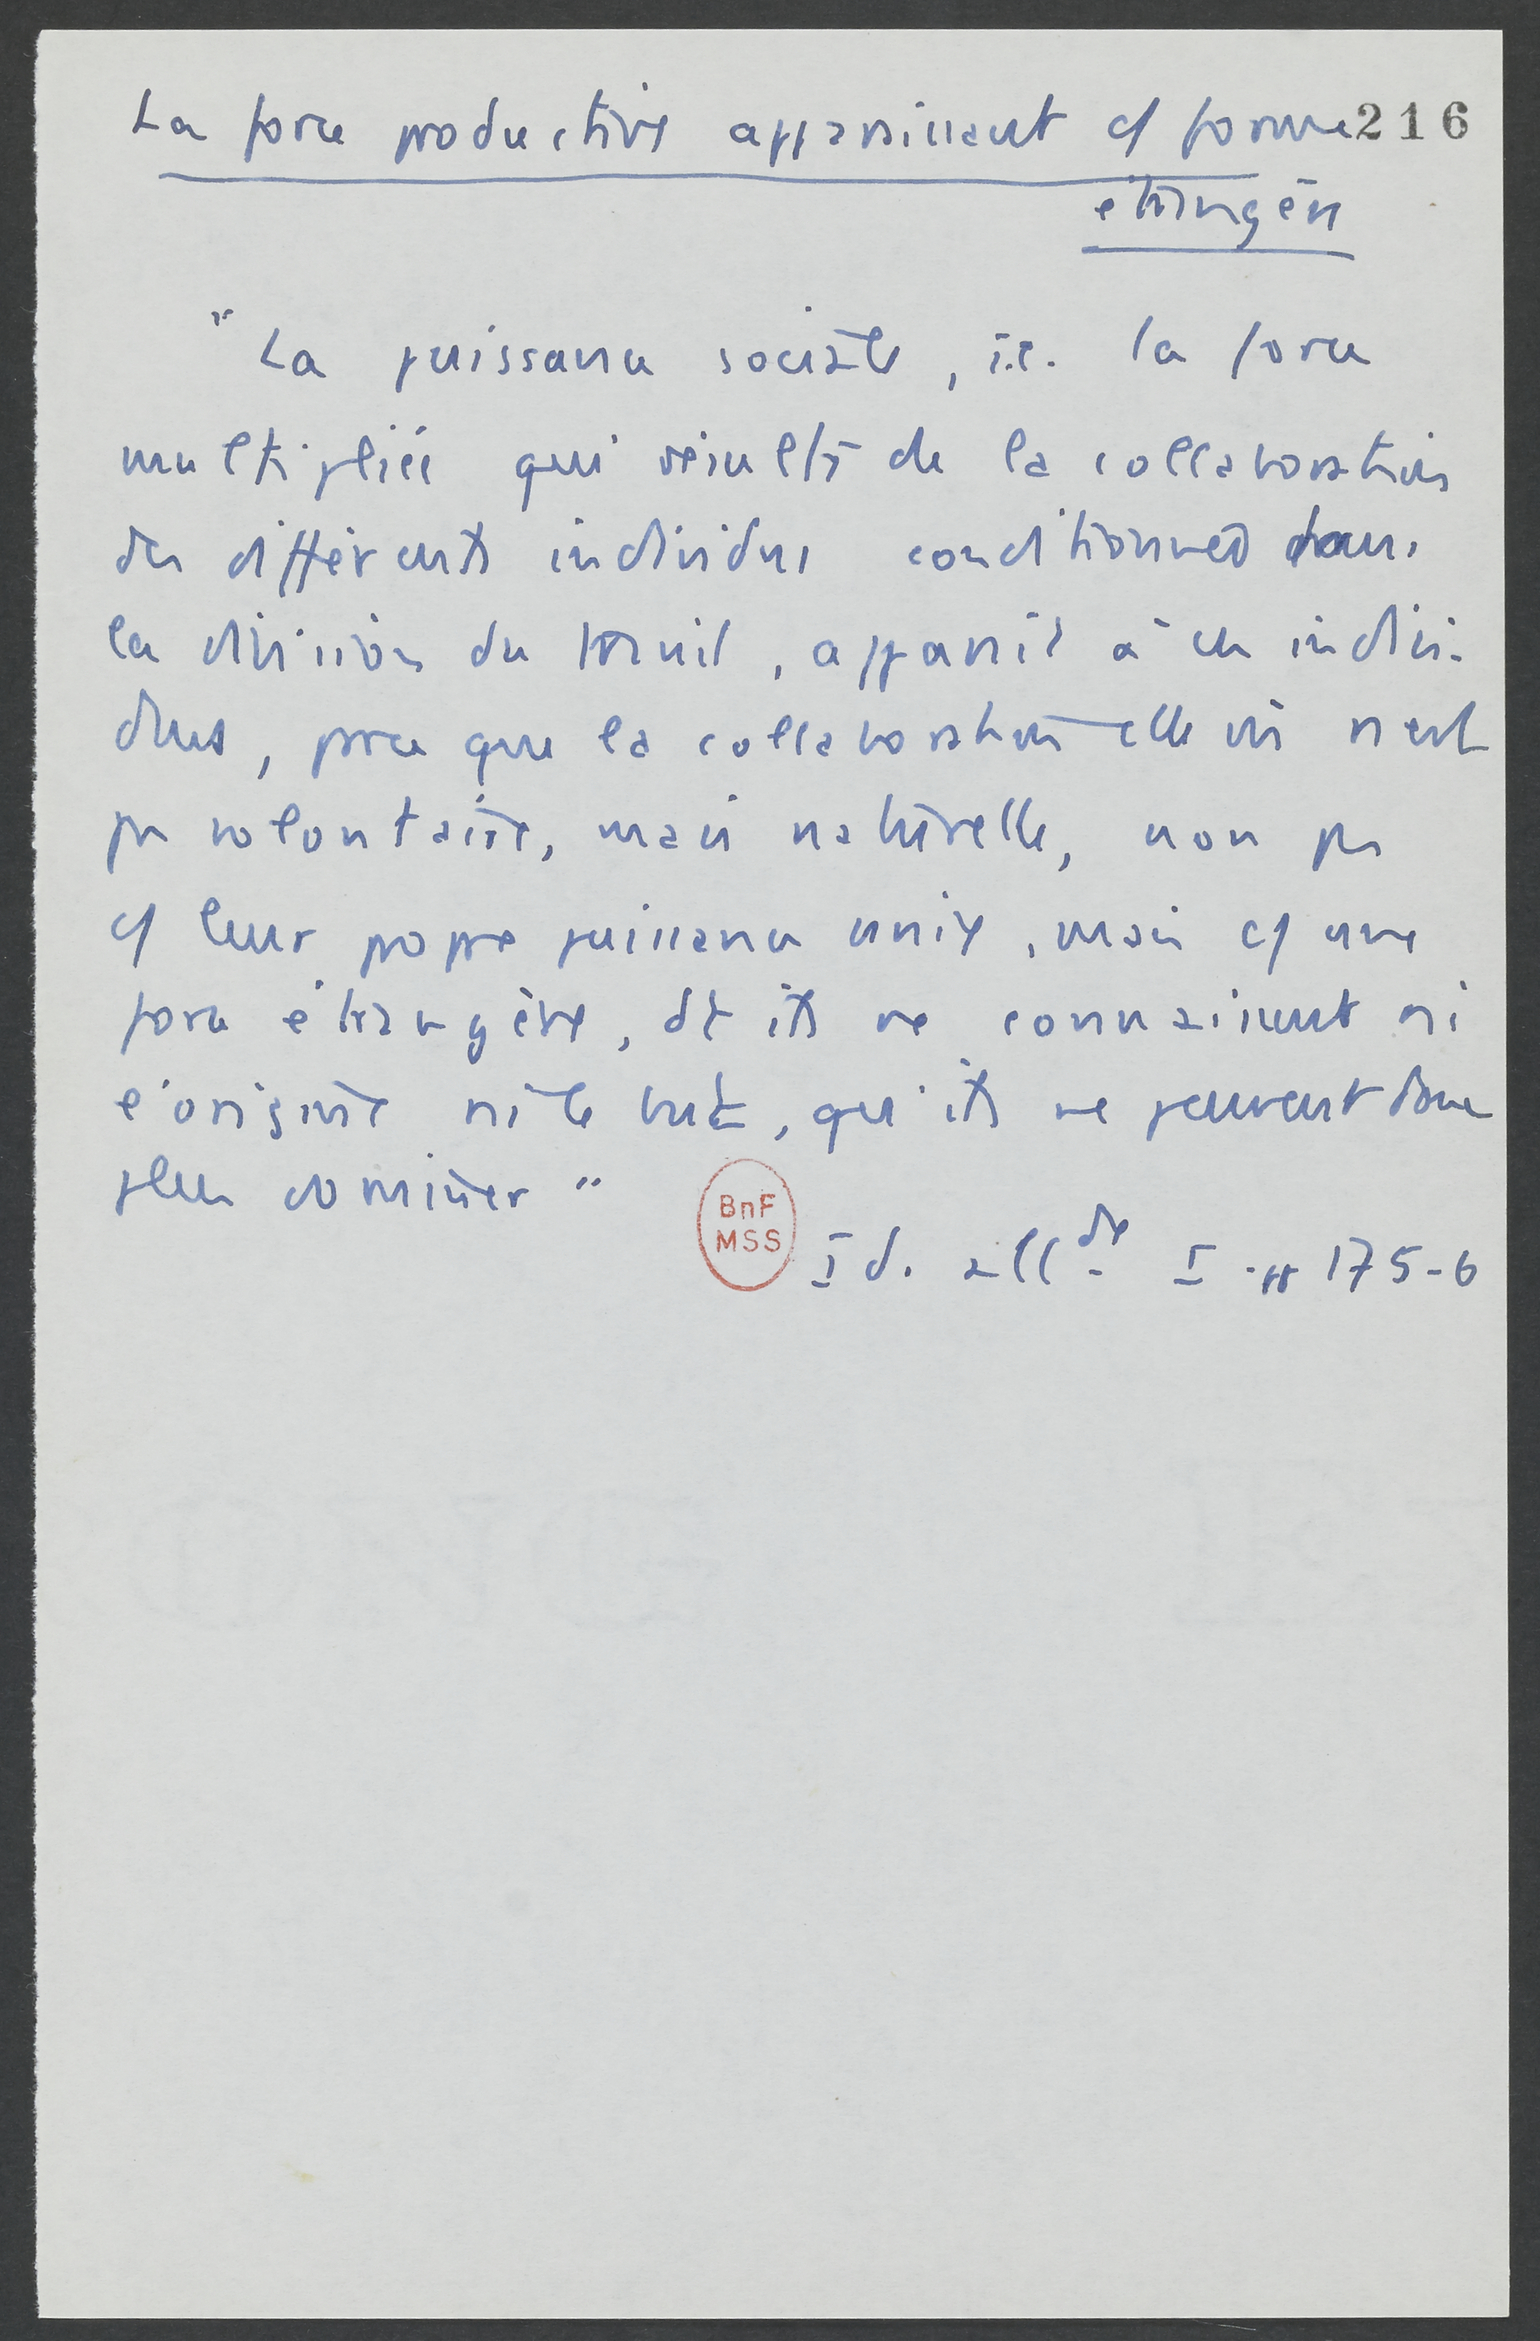 La force productive apparaissant c/ forme 216
étrangère
"La puissance sociale, i.e. la force
multipliée qui résulte de la collaboration
des différents individus conditionnée dans
la division du travail, apparaît à ces indivi-
dus, parce que la collaboration elle même n'est
pas volontaire, mais naturelle, non pas
c/ leur propre puissance unie, mais c/ une
force étrangère, dt ils ne connaissent ni
l'origine ni le but, qu'ils ne peuvent donc
plus dominer"
BnF
MSS
Id. allde I pp 175-6